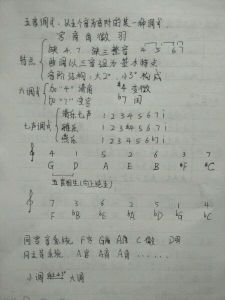 五音调式,以五个音为音阶的某一种调式
宫 商 角 徵 羽
特点 缺 4. 7. 缺三整音 4 5 6 7
曲调以三音组为基本特点
音阶结构:大2° 小3° 构成
六调式 加"4" 清角 #4 变徵
加"7" 变宫 b7 闰
七声调式 清乐七声 1 2 3 4 5 6 7 i
雅乐 1 2 3 #4 5 6 7 i
燕乐 1 2 3 4 5 6 b7 i
4 1 5 2 6 3 7
G D A E B #F #C
五度相生(向上)
7 3 6 2 5 1 4
F bB bE bA bD bG bC
同宫音系统 F宫 G商 A角 C徵 D羽
同主音系统 A宫 A商 A角 ......
小调 大调